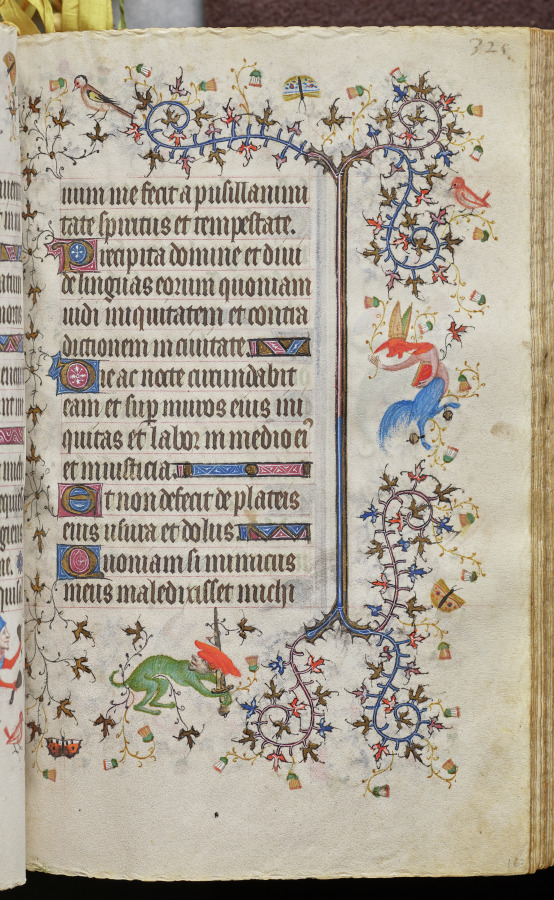 325
uum me fecit a pusillanimi
tate spiritus et tempestate.
Precipita domine et diui
de linguas eorum quoniam
uidi iniquitatem et contra
dictionem in ciuitate.
Die ac nocte circundabit
eam et sup muros eius ini
quitas et labor in medio ei9
et iniusticia.
Et non defecit de plateis
eius usura et dolus.
Quoniam si inimicus
meus maledixisset michi